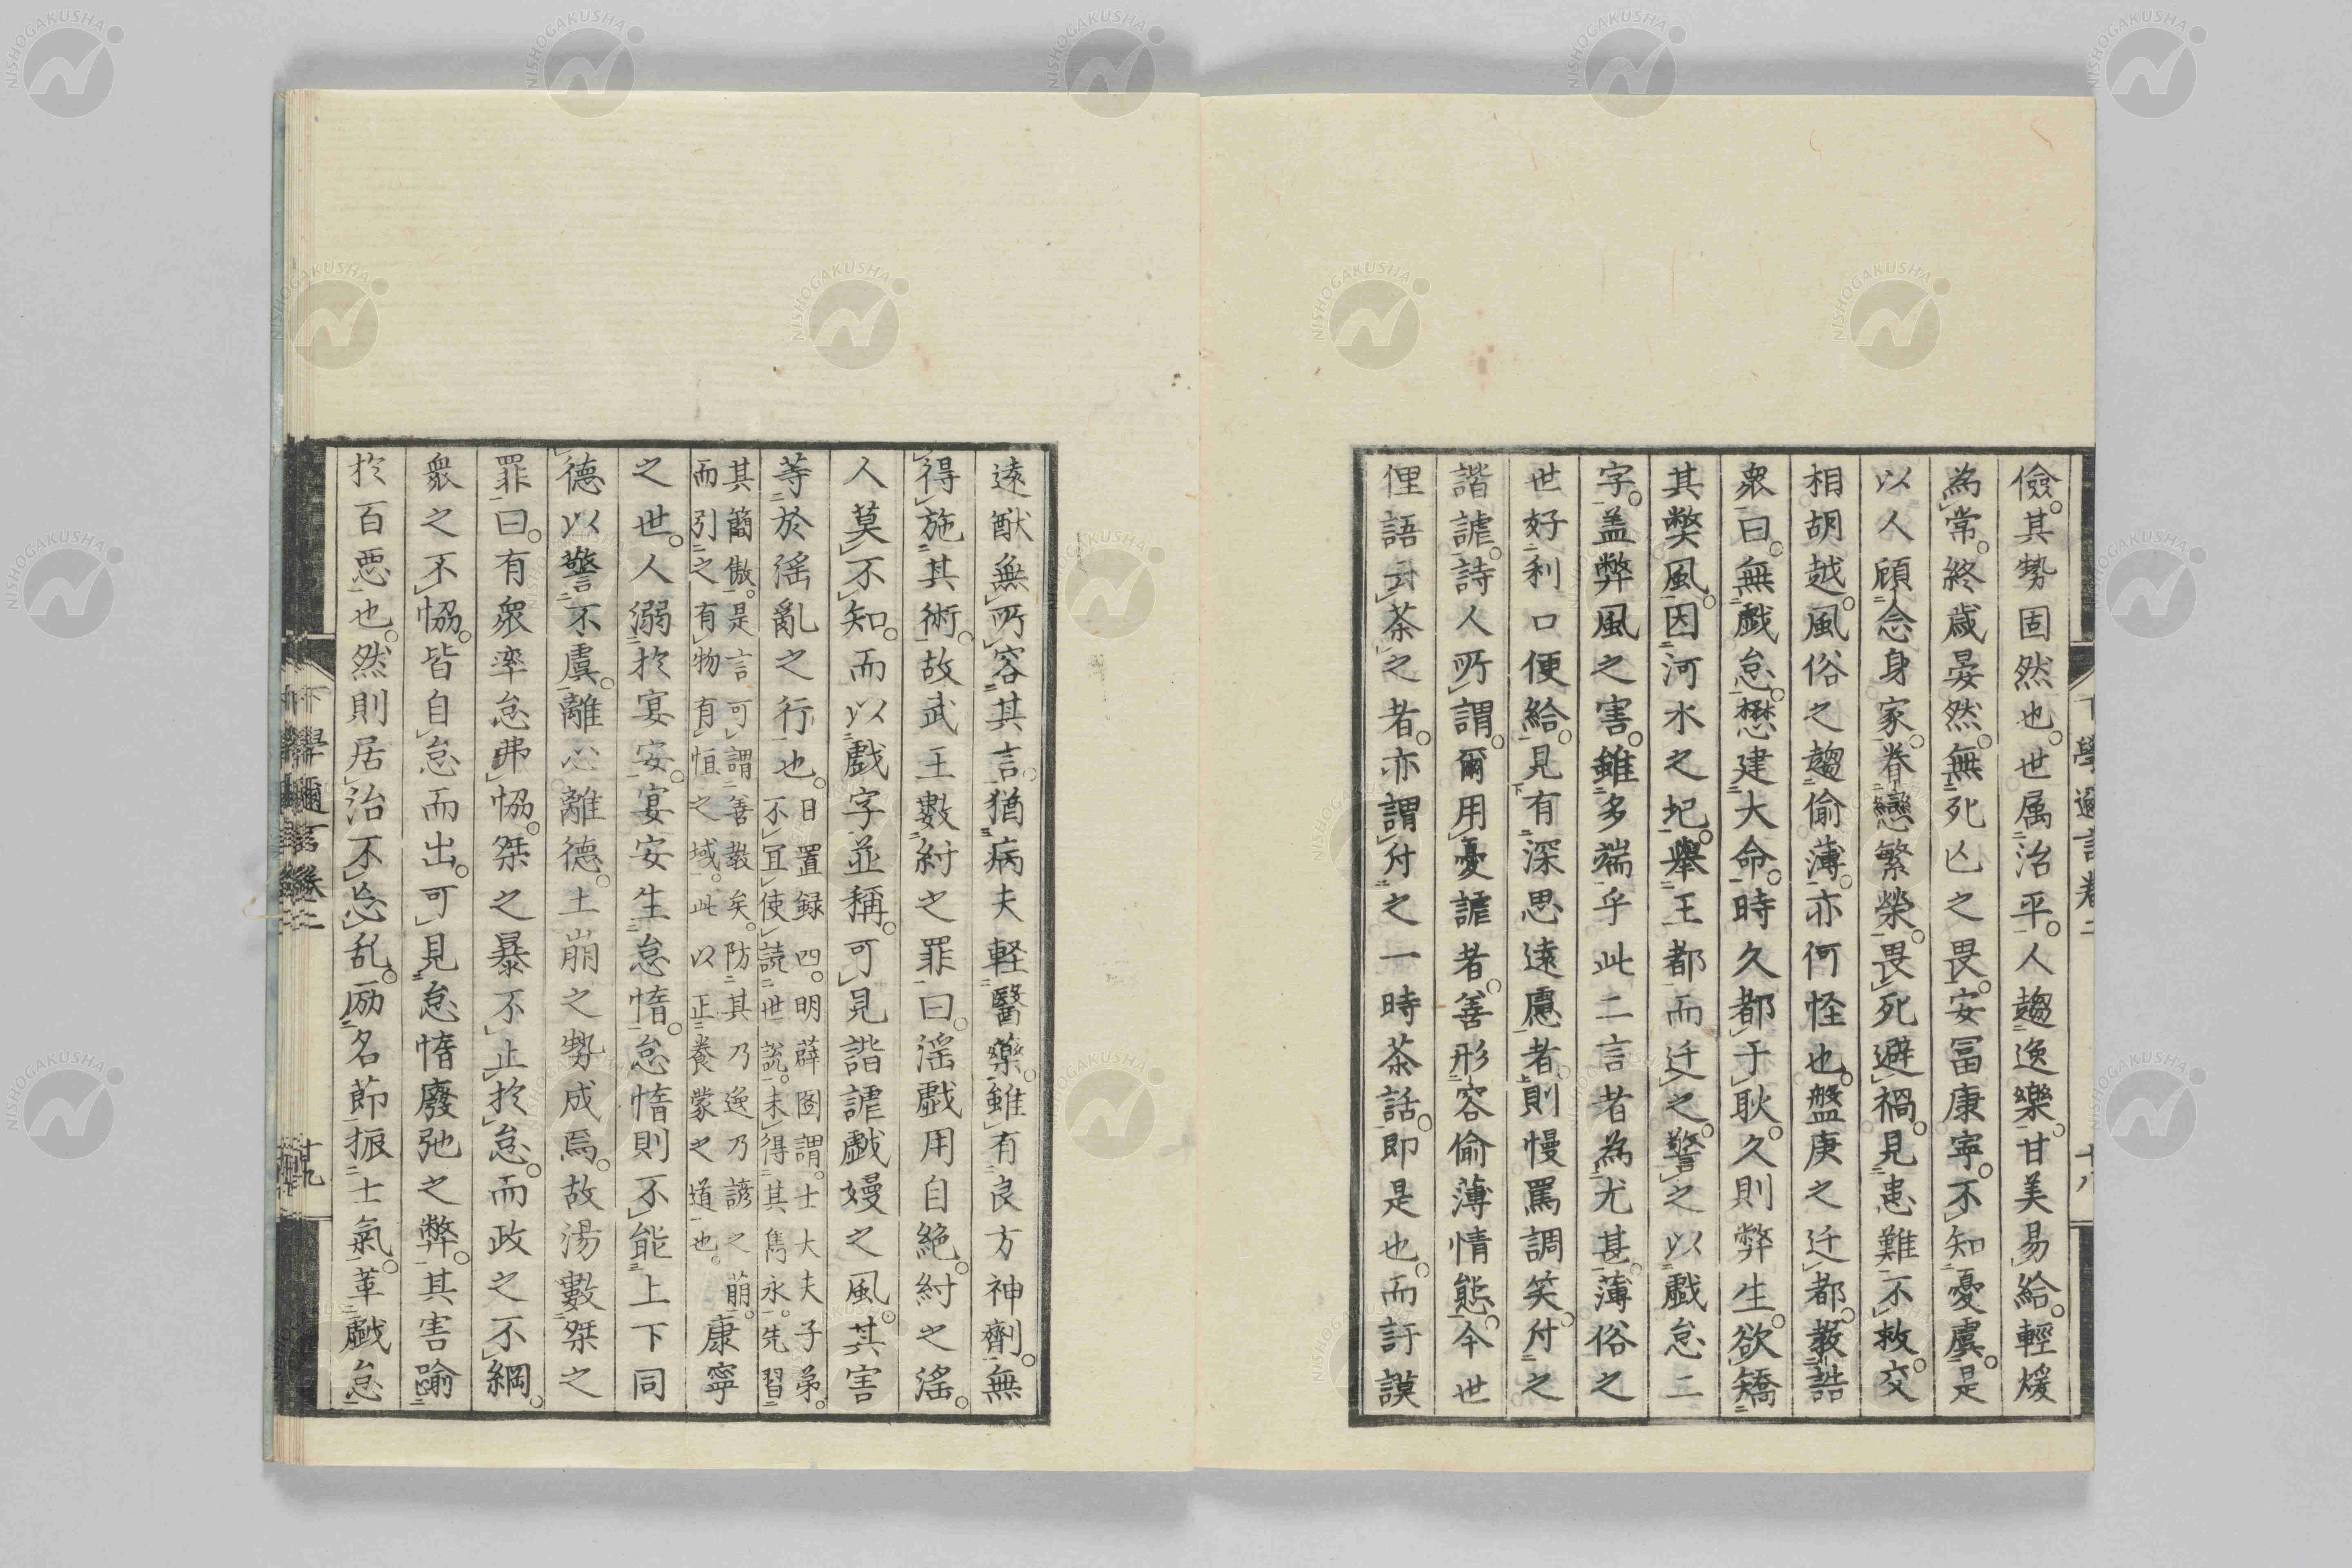 儉。其勢固然也。世属治平。人趨逸樂。甘美易給。輕煖
為常。終歳晏然。無死亾之畏。安冨康寧。不知憂虞。是
以人顧念身家。眷戀繁榮。畏死避禍。見患難不救。交
相胡越。風俗之趨偷薄。亦何怪也。盤庚之迁都。教誥
衆曰。無戲怠。懋建大命。時久都于耿。久則弊生。欲矯
其獘風。因河水之圮。舉王都而迁之。警之以戲怠二
字。盖弊風之害。雖多端乎此二言者為尤甚。薄俗之
世好利口便給。見有深思遠慮者。則慢罵調笑。付之
諧謔。詩人所謂。爾用憂謔者。善形容偷薄情態。今世
俚語云茶之者。亦謂付之一時茶話。即是也。而訏謨
遠猷無所容其言。猶病夫軽醫藥。雖有良方神劑。無
得施其術。故武王數紂之罪曰。淫戲用自絶。紂之淫。
人莫不知。而以戲字並稱。可見諧謔戲嫚之風。其害
等於淫亂之行也。日置録四。明薛圄謂。士大夫子弟。
不冝使読世説。未得其雋永。先習
其簡傲。是言可謂善教矣。防其乃逸乃諺之萠。
而引之有物有恒之域。此以正養蒙之道也。康寧
之世。人溺於宴安。宴安生怠惰。怠惰則不能上下同
德以警不虞。離心離德。土崩之勢成焉。故湯數桀之
罪曰。有衆率怠弗恊。桀之暴不止於怠。而政之不綱。
衆之不恊。皆自怠而出。可見怠惰廢弛之弊。其害踰
於百惡也。然則居治不忘乱。励名節振士氣。革戲怠
下學邇言卷二
十八
十九
NISHOGAKUSHA